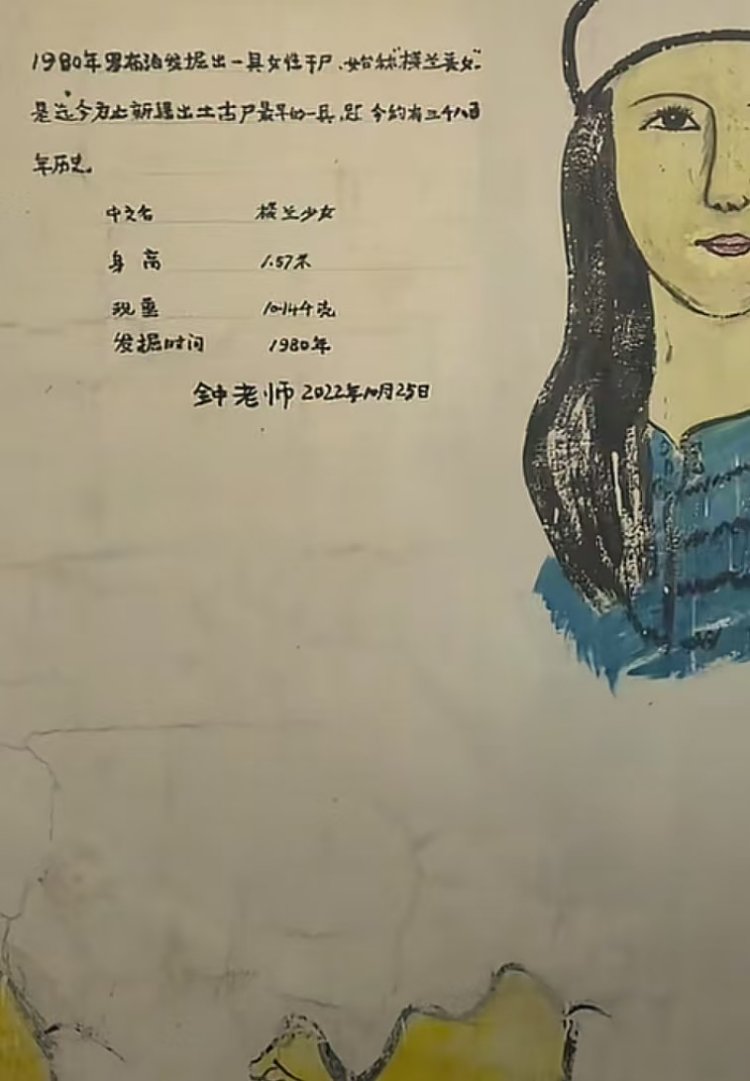 1980年罗布泊发掘出一具女性干尸、始称"楼兰美女"
是迄今为止新疆出土古尸最早的一具,距今约有三千八百
年历史。
中文名 楼兰少女
身高 1.57米
现重 10.14千克
发掘时间 1980年
钟老师 2022年10月25日